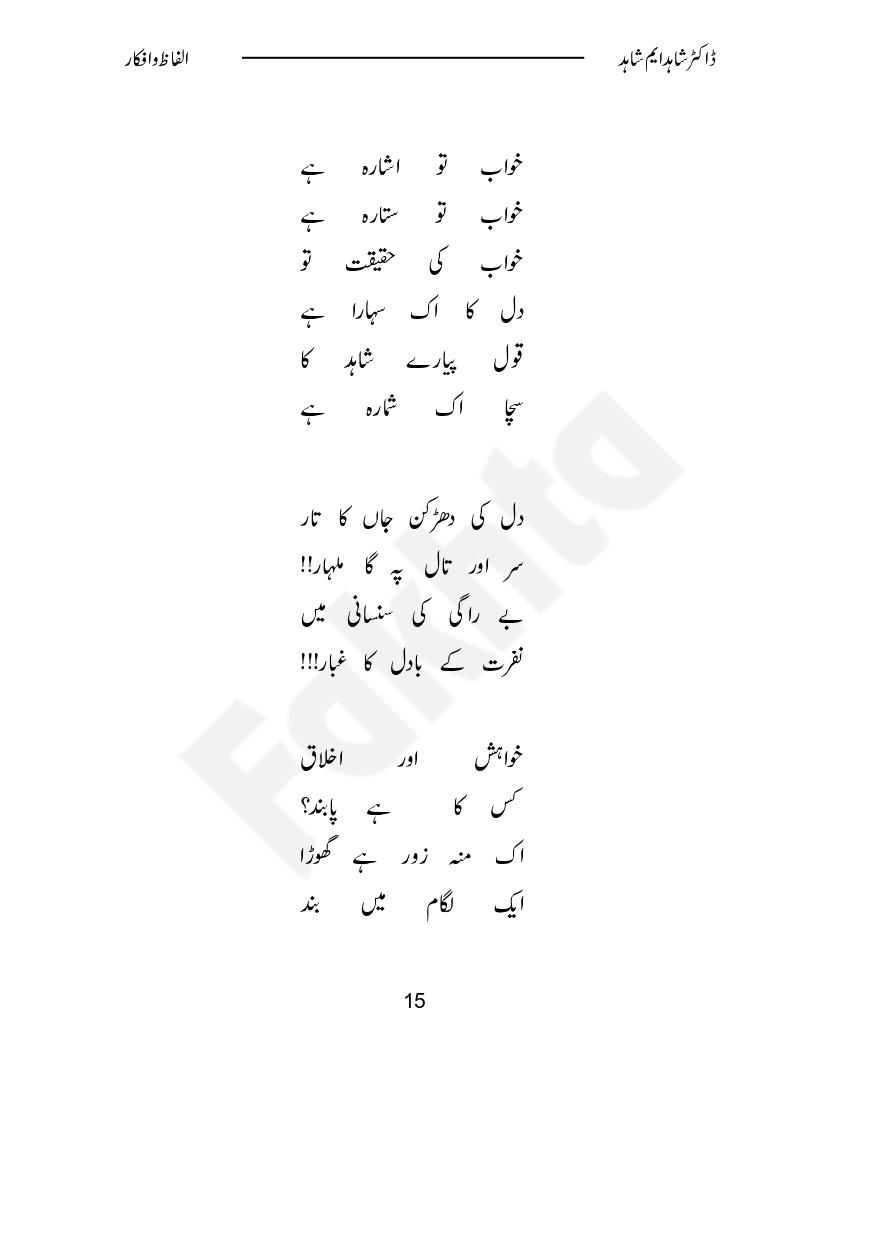 ڈاکٹر شاہد ایم شاہد الفاظ و افکار
خواب تو اشارہ ہے
خواب تو ستارہ ہے
خواب کی حقیقت تو
دل کا اک سہارا ہے
قول پیارے شاہد کا
سچا اک شمارہ ہے
دل کی دھڑکن جاں کا تار
سر اور تال پہ گا ملہار!!
بے راگی کی سنسانی میں
نفرت کے بادل کا غبار!!!
خواہش اور اخلاق
کس کا ہے پابند؟
اک منہ زور ہے گھوڑا
ایک لگام میں بند
15
Fakhta